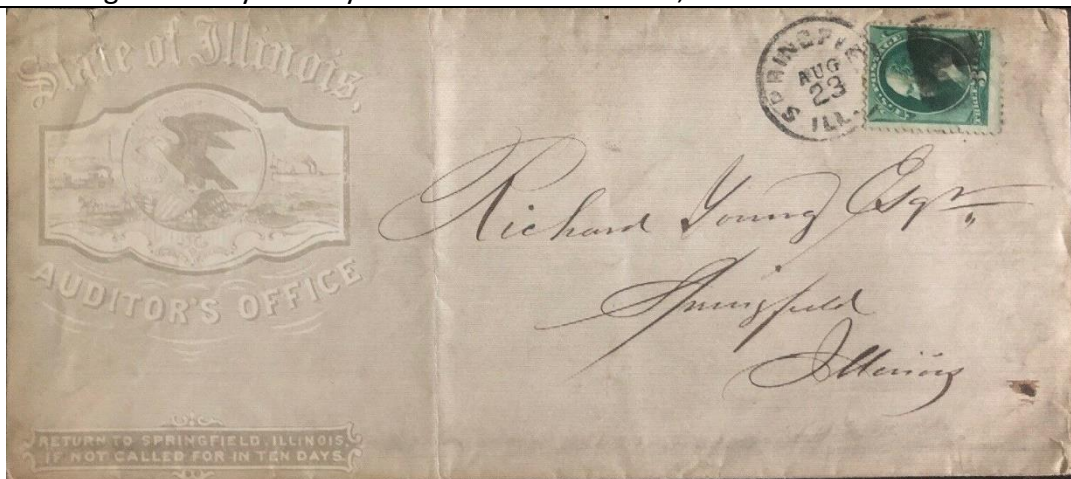 State of Illinois.
AUDITOR'S OFFICE
RETURN TO SPRINGFIELD, ILLINOIS,
IF NOT CALLED FOR IN TEN DAYS.
SPRINGFIELD
AUG
23
ILL.
U.S. POSTAGE
Richard Young Esqr
Springfield
Illinois